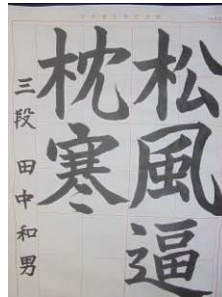 松風逼
枕寒
三段 田中和男